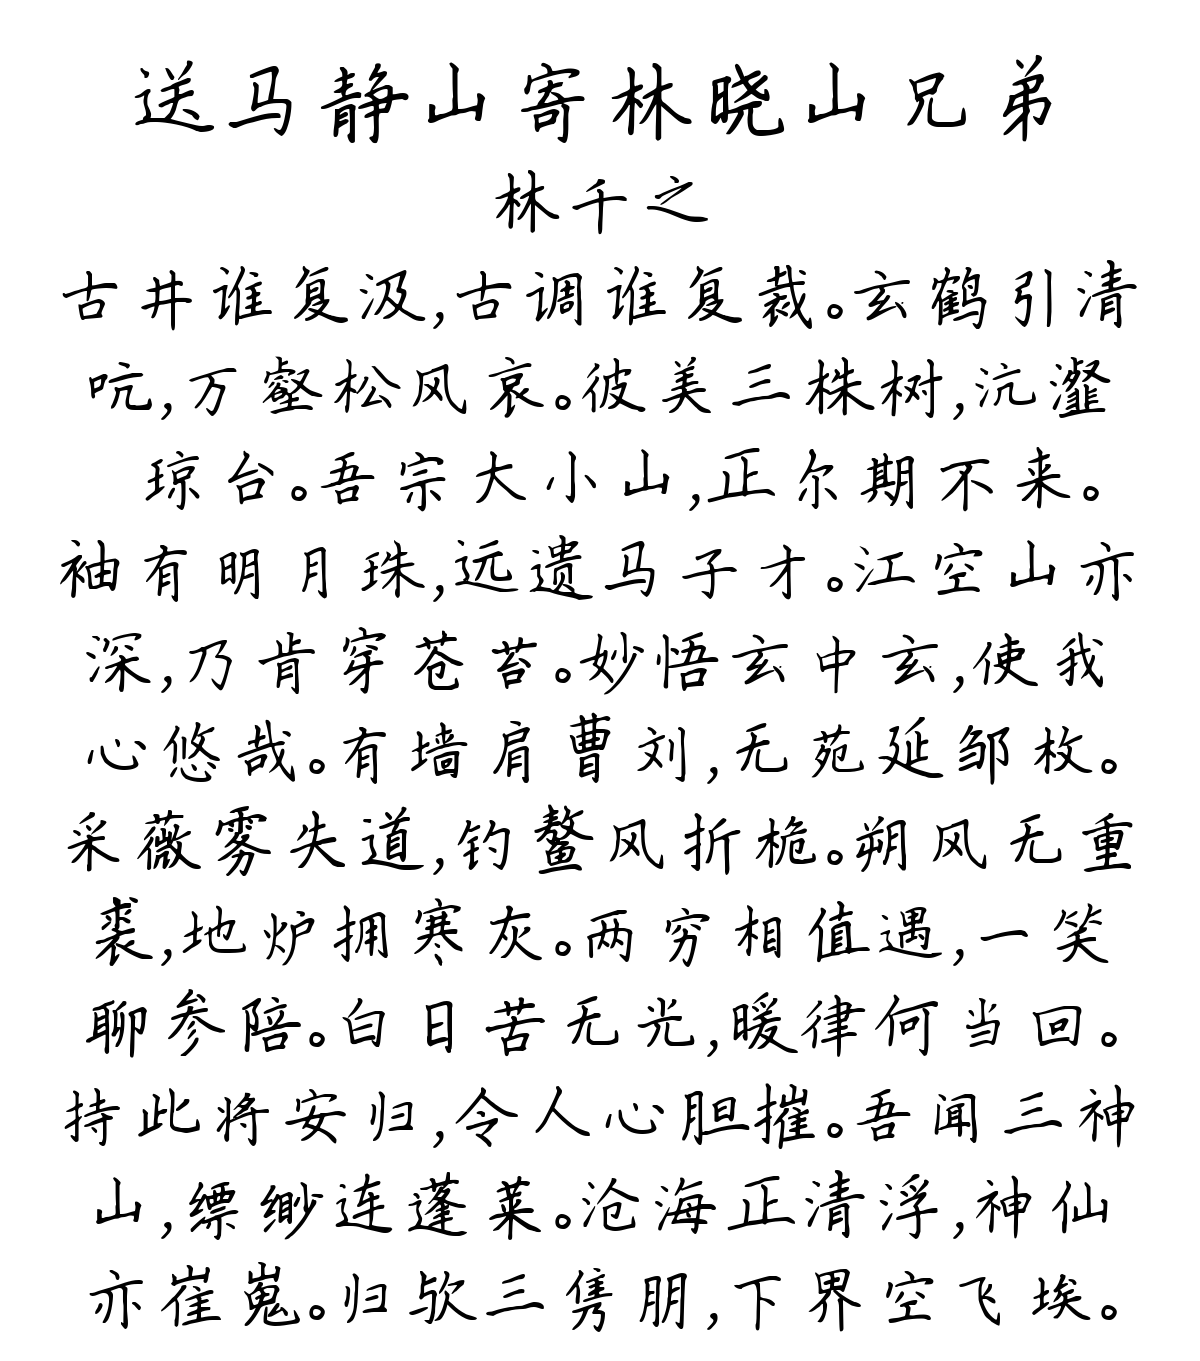 送马静山寄林晓山兄弟
林千之
古井谁复汲,古调谁复裁。玄鹤引清
吭,万壑松风哀。彼美三株树,沆瀣
琼台。吾宗大小山,正尔期不来。
袖有明月珠,远遗马子才。江空山亦
深,乃肯穿苍苔。妙悟玄中玄,使我
心悠哉。有墙肩曹刘,无苑延邹枚。
采薇雾失道,钓鳌风折桅。朔风无重
裘,地炉拥寒灰。两穷相值遇,一笑
聊参陪。白日苦无光,暖律何当回。
持此将安归,令人心胆摧。吾闻三神
山,缥缈连蓬莱。沧海正清浮,神仙
亦崔嵬。归欤三隽朋,下界空飞埃。